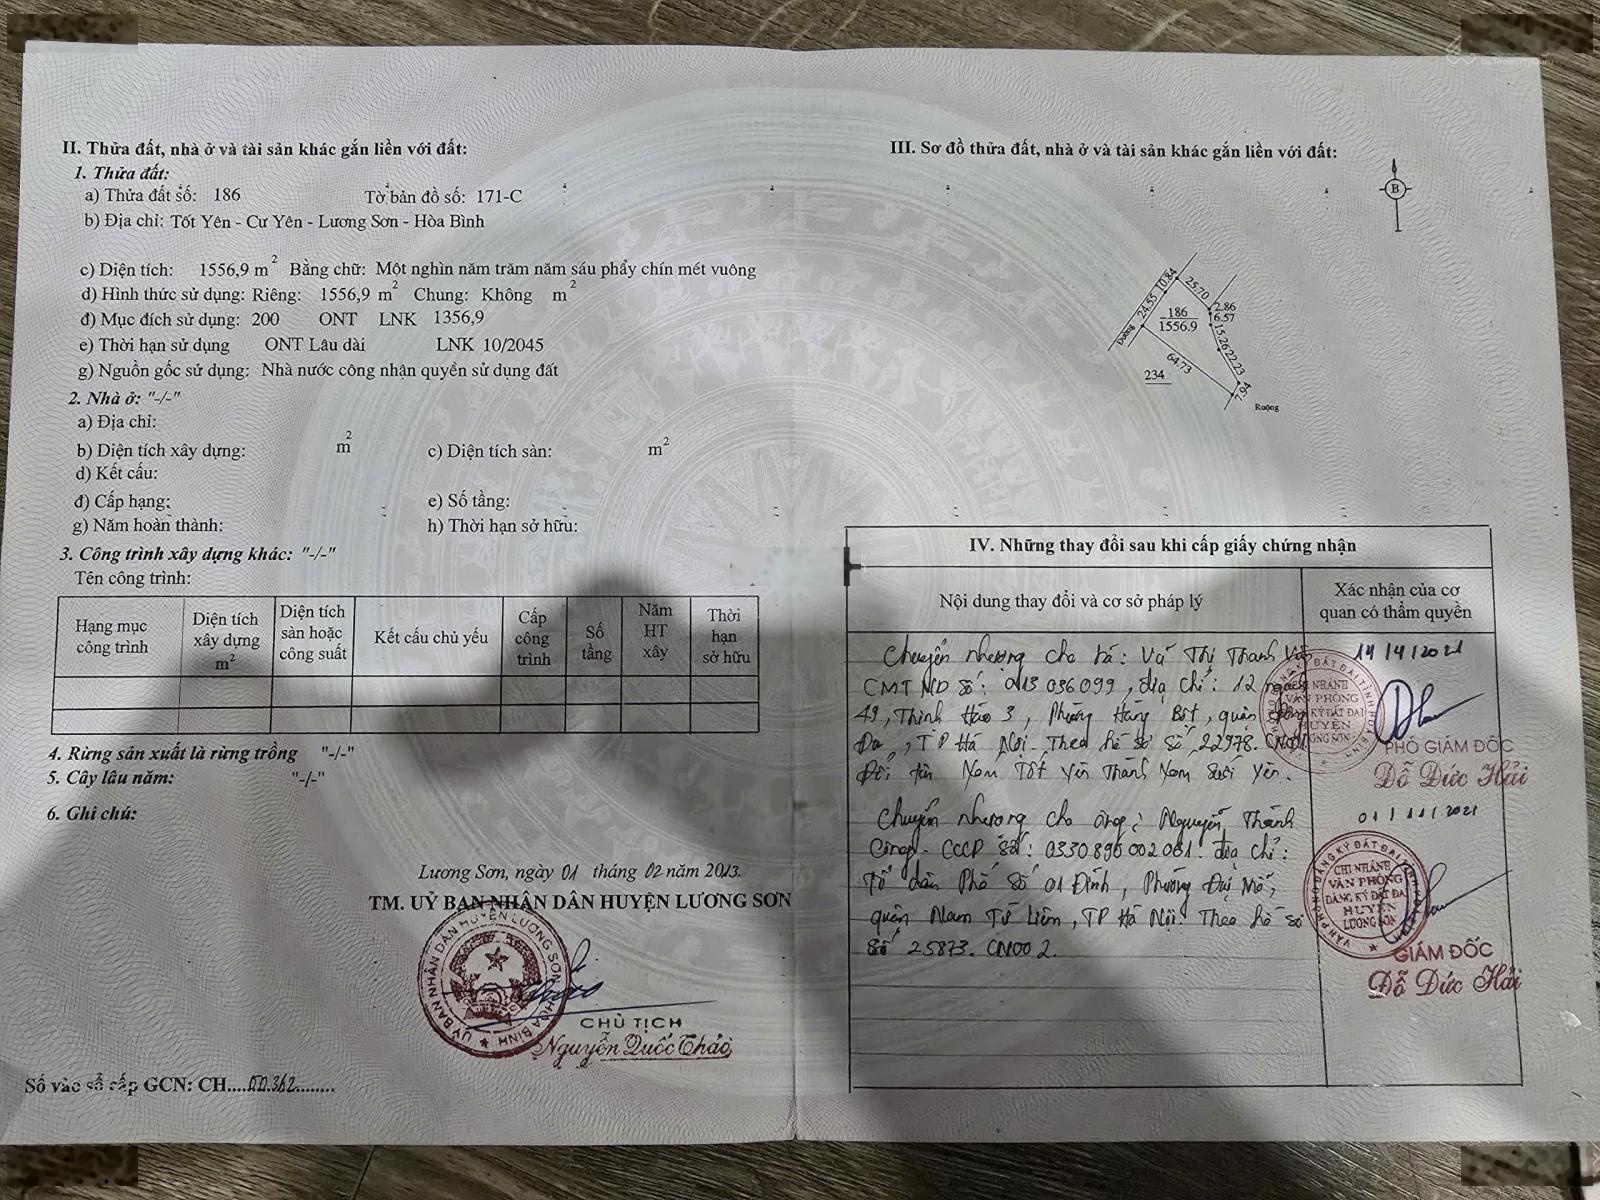 II. Thửa đất, nhà ở và tài sản khác gắn liền với đất:
1. Thửa đất:
a) Thửa đất số: 186 Tờ bản đồ số: 171-C
b) Địa chỉ: Tốt Yên - Cư Yên - Lương Sơn - Hòa Bình
c) Diện tích: 1556,9 m2 Bằng chữ: Một nghìn năm trăm năm sáu phẩy chín mét vuông
d) Hình thức sử dụng: Riêng: 1556,9 m2 Chung: Không m2
đ) Mục đích sử dụng: 200 ONT LNK 1356,9
e) Thời hạn sử dụng ONT Lâu dài LNK 10/2045
g) Nguồn gốc sử dụng: Nhà nước công nhận quyền sử dụng đất
2. Nhà ở: "-/-"
a) Địa chỉ:
b) Diện tích xây dựng: m2 c) Diện tích sàn: m2
d) Kết cấu:
đ) Cấp hạng: e) Số tầng:
g) Năm hoàn thành: h) Thời hạn sở hữu:
3. Công trình xây dựng khác: "-/-"
Tên công trình:
Hạng mục công trình
Diện tích xây dựng m2
Diện tích sàn hoặc công suất
Kết cấu chủ yếu
Cấp công trình
Số tầng
Năm HT xây
Thời hạn sở hữu
4. Rừng sản xuất là rừng trồng "-/-"
5. Cây lâu năm: "-/-"
6. Ghi chú:
Lương Sơn, ngày 01 tháng 02 năm 2013.
TM. UỶ BAN NHÂN DÂN HUYỆN LƯƠNG SƠN
ỦY BAN NHÂN DÂN HUYỆN LƯƠNG SƠN
HÒA BÌNH
CHỦ TỊCH
Nguyễn Quốc Thảo
Số vào sổ cấp GCN: CH....00362........
III. Sơ đồ thửa đất, nhà ở và tài sản khác gắn liền với đất:
B
10.84
24.55
25.70
2.86
6.57
15.26
22.23
7.94
64.73
186
1556.9
234
Đường
Ruộng
IV. Những thay đổi sau khi cấp giấy chứng nhận
Nội dung thay đổi và cơ sở pháp lý
Xác nhận của cơ quan có thẩm quyền
Chuyển nhượng cho bà: Vũ Thị Thanh Vân
CMTND số: 013036099, địa chỉ: 12 ngách
49, Thịnh Hào 3, Phường Hàng Bột, quận Đống
Đa, TP Hà Nội. Theo hồ sơ số 22978.
Đổi từ Xóm Tốt Yên Thành Xóm Suối Yên.
14/4/2021
CHI NHÁNH
VĂN PHÒNG
ĐĂNG KÝ ĐẤT ĐAI
HUYỆN
LƯƠNG SƠN
PHÓ GIÁM ĐỐC
Đỗ Đức Hải
Chuyển nhượng cho ông: Nguyễn Thành
Công - CCCD Số: 033089002081. Địa chỉ:
Tổ dân Phố Số 01 Đình, Phường Đại Mỗ,
quận Nam Từ Liêm, TP Hà Nội. Theo hồ sơ
số 25873. CN002.
01/11/2021
CHI NHÁNH
VĂN PHÒNG
ĐĂNG KÝ ĐẤT ĐAI
HUYỆN
LƯƠNG SƠN
GIÁM ĐỐC
Đỗ Đức Hải